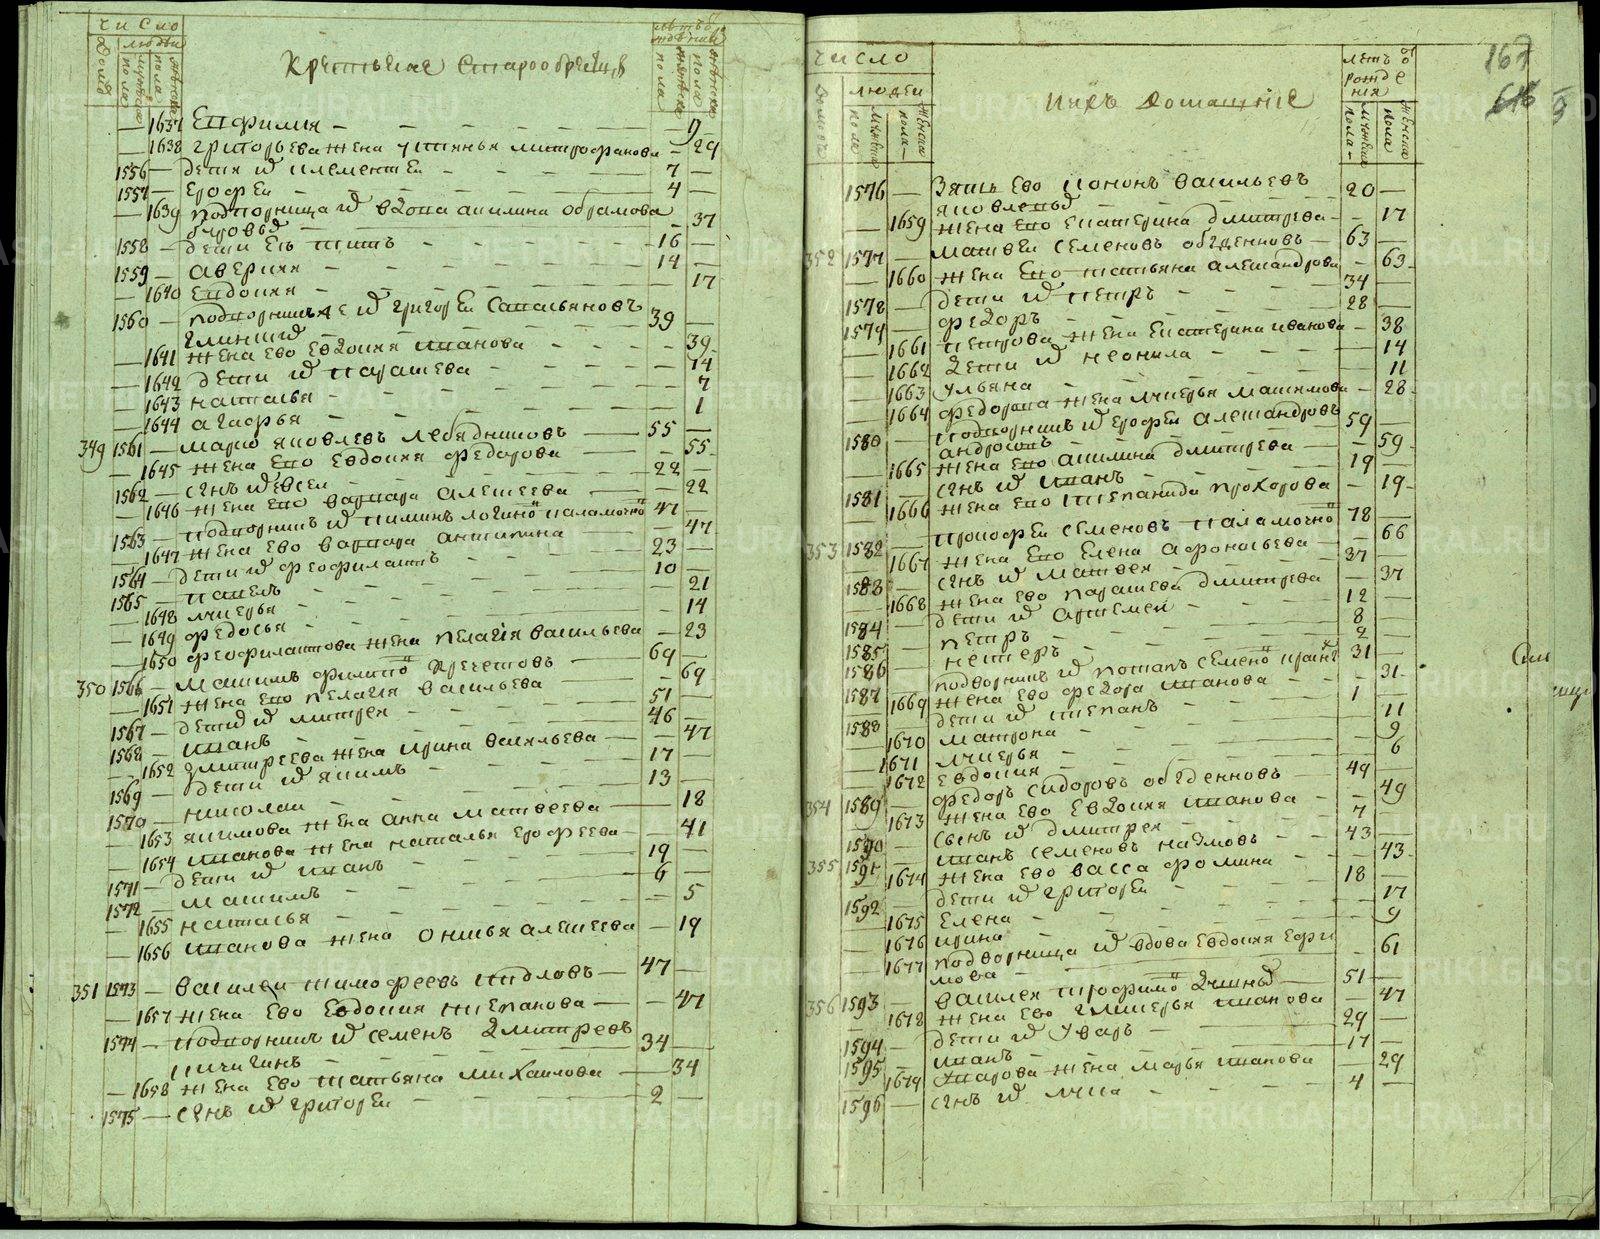 число
Крестьяне Старообрядцы
— 1637 Епфимия — — — 9
— 1638 Григорьева жена Устинья Митрофанова — 29
1556 — дети их Клементей — 7 —
1557 — Ерофеи — 4 —
— 1639 подворница их вдова Акилина Абрамова — 37
1558 — дети ее Титъ — 16 —
1559 — Аверкия — 14 —
— 1640 Евдокия — 17
1560 — подворникъ их Григореи 39 —
— 1641 жена ево Евдокия Иванова — 39
— 1642 дети их Парасъева — 14
— 1643 Наталья — 7
— 1644 Агафья — 1
349 1561 — Марко Яковлевъ Лебядниковъ — 55 —
— 1645 жена ево Евдокия Федорова — 55
1562 — сынъ их Евсеи — 22 —
— 1646 жена ево Варвара Алексеева — 22
1563 — подворникъ их Пиминъ 47 —
— 1647 жена ево Варвара Антипина — 47
1564 — дети их Феофилактъ — 23 —
1565 — Павелъ — 10 —
— 1648 Лукерья — 21
— 1649 Федосья — 14
— 1650 Феофилактова жена Пелагия Васильева — 23
350 1566 — Максимъ Филипо Кречетовъ — 69 —
— 1651 жена ево Пелагия Васильева — 69
1567 — дети их Митреи — 51 —
1568 — Иванъ — 46 —
— 1652 Дмитреева жена Ирина Васильева — 47
1569 — дети их Якимъ — 17 —
1570 — Николаи — 13 —
— 1653 Якимова жена Анна Матвеева — 18
— 1654 Иванова жена Наталья Ерофеева — 41
1571 — дети их Иванъ — 19 —
1572 — Максимъ — 6 —
— 1655 Наталья — 5
— 1656 Иванова жена Оникья Алексеева — 19
351 1573 — Василеи Тимофеевъ 47 —
— 1657 жена ево Евдокия Степанова — 47
1574 — подворникъ их Семенъ Дмитреевъ
Кичигинъ 34 —
— 1658 жена ево Татьяна Михаилова — 34
1575 — сынъ их Григореи — 2 —
число
людеи
ихъ домашние
167
1576 — Зять ево Кононъ Васильевъ 20 —
— 1659 жена ево Екатерина Дмитрева — 17
352 1577 — Матвеи Семеновъ Обуденновъ — 63 —
— 1660 жена ево Татьяна Александрова — 63
1578 — дети их Петръ — 34 —
1579 — Федоръ — 28 —
— 1661 Петрова жена Екатерина Иванова — 38
— 1662 дети их Неонила — 14
— 1663 Ульяна — 11
— 1664 Федорова жена Лукерья Максимова — 28
1580 — подворникъ их Ерофеи Александровъ 59 —
— 1665 жена ево Акилина Дмитрева — 59
1581 — сынъ их Иванъ — 19 —
— 1666 жена ево Степанида Прохорова — 19
353 1582 — Прокофеи Семеновъ 78 —
— 1667 жена ево Елена Афонасьева — 66
1583 — сынъ их Матвеи — 37 —
— 1668 жена ево Парасъева Дмитрева — 37
1584 — дети их Артемеи — 12 —
1585 — Петръ — 8 —
1586 — Нестеръ — 2 —
1587 — подворникъ их Потапъ Семено 31 —
— 1669 жена ево Федора Иванова — 31
1588 — дети их Степанъ — 1 —
— 1670 Матрона — 11
— 1671 Лукерья — 9
— 1672 Евдокия — 6
354 1589 — Федоръ Сидоровъ Обуденновъ — 49 —
— 1673 жена ево Евдокия Иванова — 49
1590 — сынъ их Дмитреи — 7 —
355 1591 — Иванъ Семеновъ Наумовъ — 43 —
— 1674 жена ево Васса Фомина — 43
1592 — дети их Григореи — 18 —
— 1675 Елена — 17
— 1676 Ирина — 9
— 1677 подворница их вдова Евдокия Ефи
мова — 61
356 1593 — Василеи Трофимо 51 —
— 1678 жена ево Гликерья Иванова — 47
1594 — дети их Уваръ — 29 —
1595 — Иванъ — 17 —
— 1679 Уварова жена Марья Иванова — 29
1596 — сынъ их Лука — 4 —
METRIKI.GASO-URAL.RU